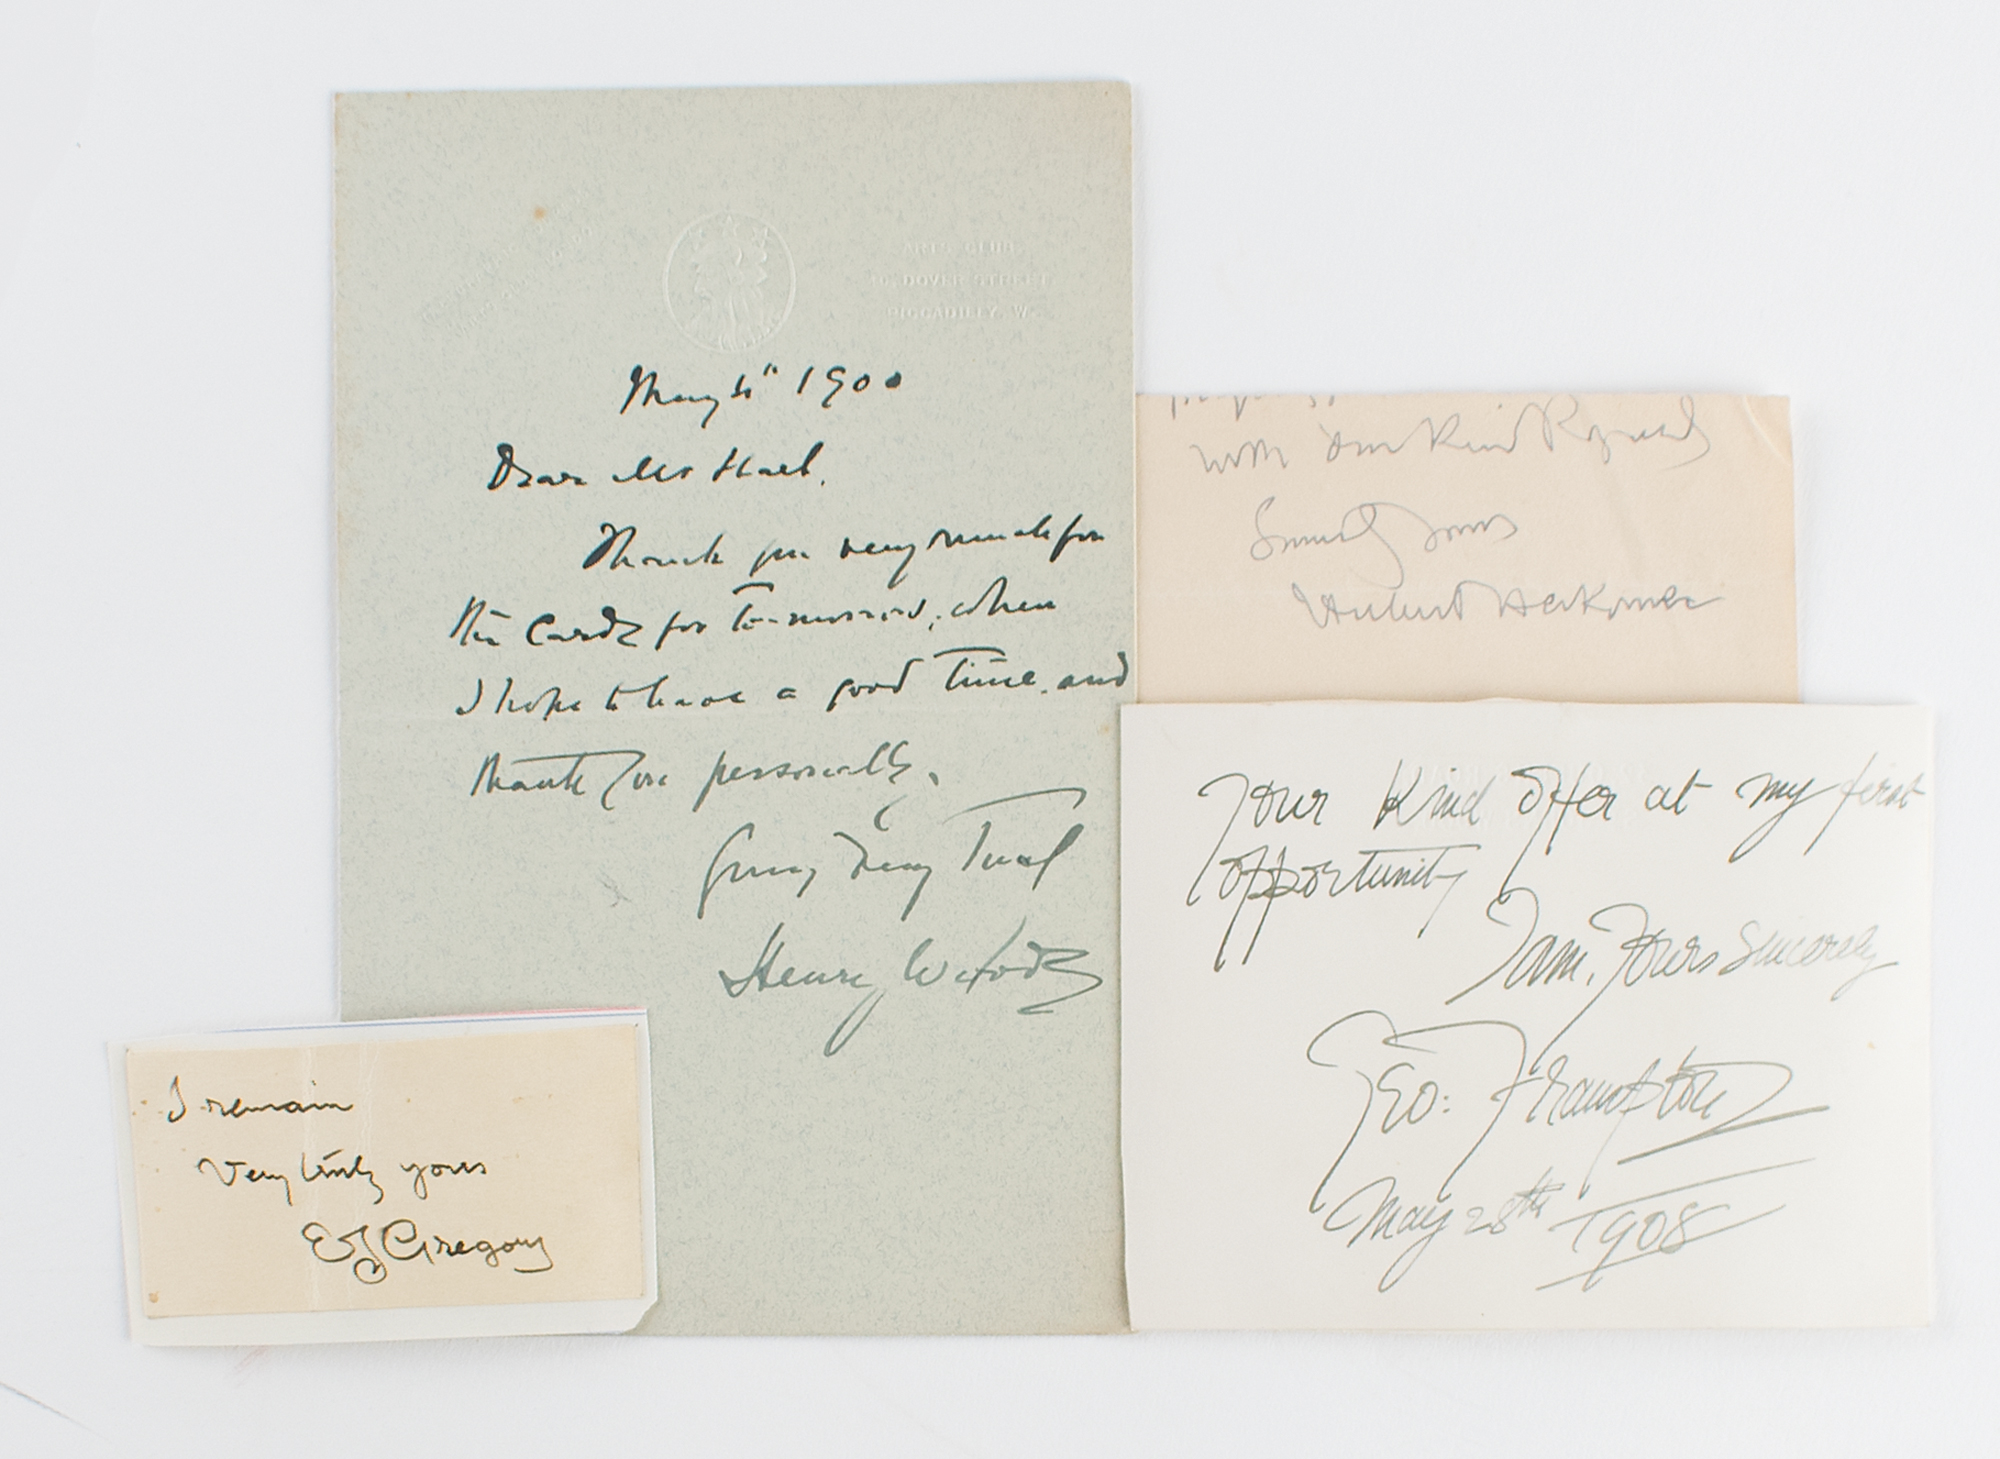 ARTS CLUB,
DOVER STREET
PICCADILLY. W.
May 1900
Dear Mr Hall.
Thank you very much for
the cards for to-morrow, when
I hope to have a good time, and
thank you personally.
Very Truly
Henry Woods
with kind Regards
Sincerely Yours
Hubert Herkomer
Your Kind offer at my first
opportunity
I am, Yours Sincerely
Geo: Frampton
May 28th 1908
I remain
Very truly yours
EJ Gregory